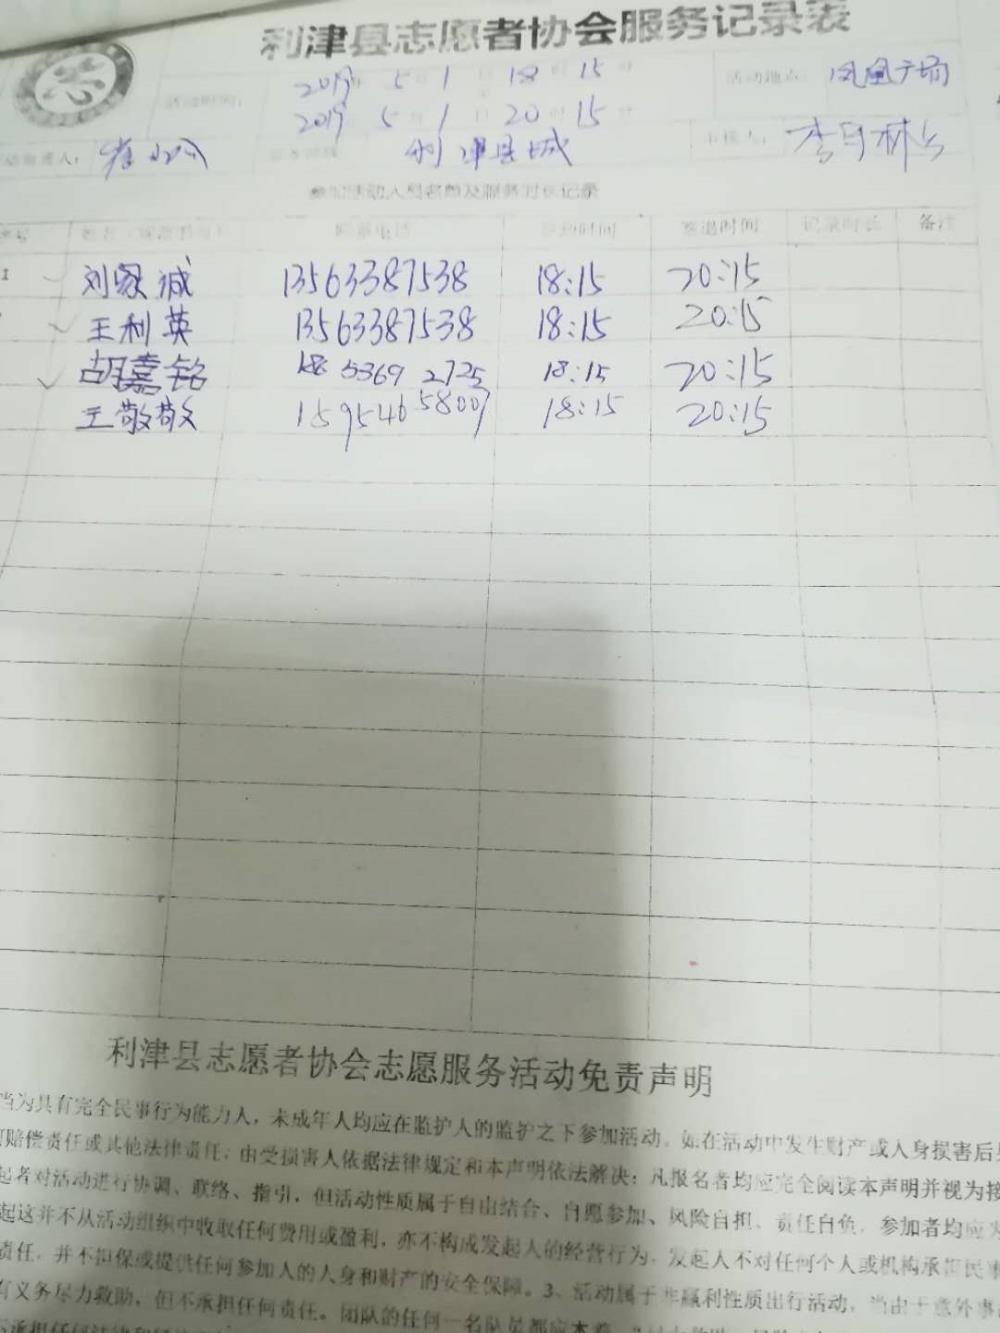 利津县志愿者协会服务记录表
活动时间: 2019 5 1 18 15 活动地点: 凤凰广场
2019 5 1 20 15
利津县城
参加活动人员名单及服务时长记录
联系电话 签到时间 签退时间 记录时长 备注
1 刘家诚 13563387538 18:15 20:15
王利英 13563387538 18:15 20:15
胡嘉铭 5369 2725 18:15 20:15
王敬敬 15954658007 18:15 20:15
利津县志愿者协会志愿服务活动免责声明
当为具有完全民事行为能力人，未成年人均应在监护人的监护之下参加活动。如在活动中发生财产或人身损害后
赔偿责任或其他法律责任，由受损害人依据法律规定和本声明依法解决；凡报名者均应完全阅读本声明并视为接
起者对活动进行协调、联络、指引，但活动性质属于自由结合、自愿参加、风险自担、责任自负。参加者均应
起这并不从活动组织中收取任何费用或盈利，亦不构成发起人的经营行为，发起人不对任何个人或机构承担民事
责任，并不担保或提供任何参加人的人身和财产的安全保障。3、活动属于非赢利性质出行活动，当由于意外事
有义务尽力救助，但不承担任何责任。团队的任何一名队员都应本着